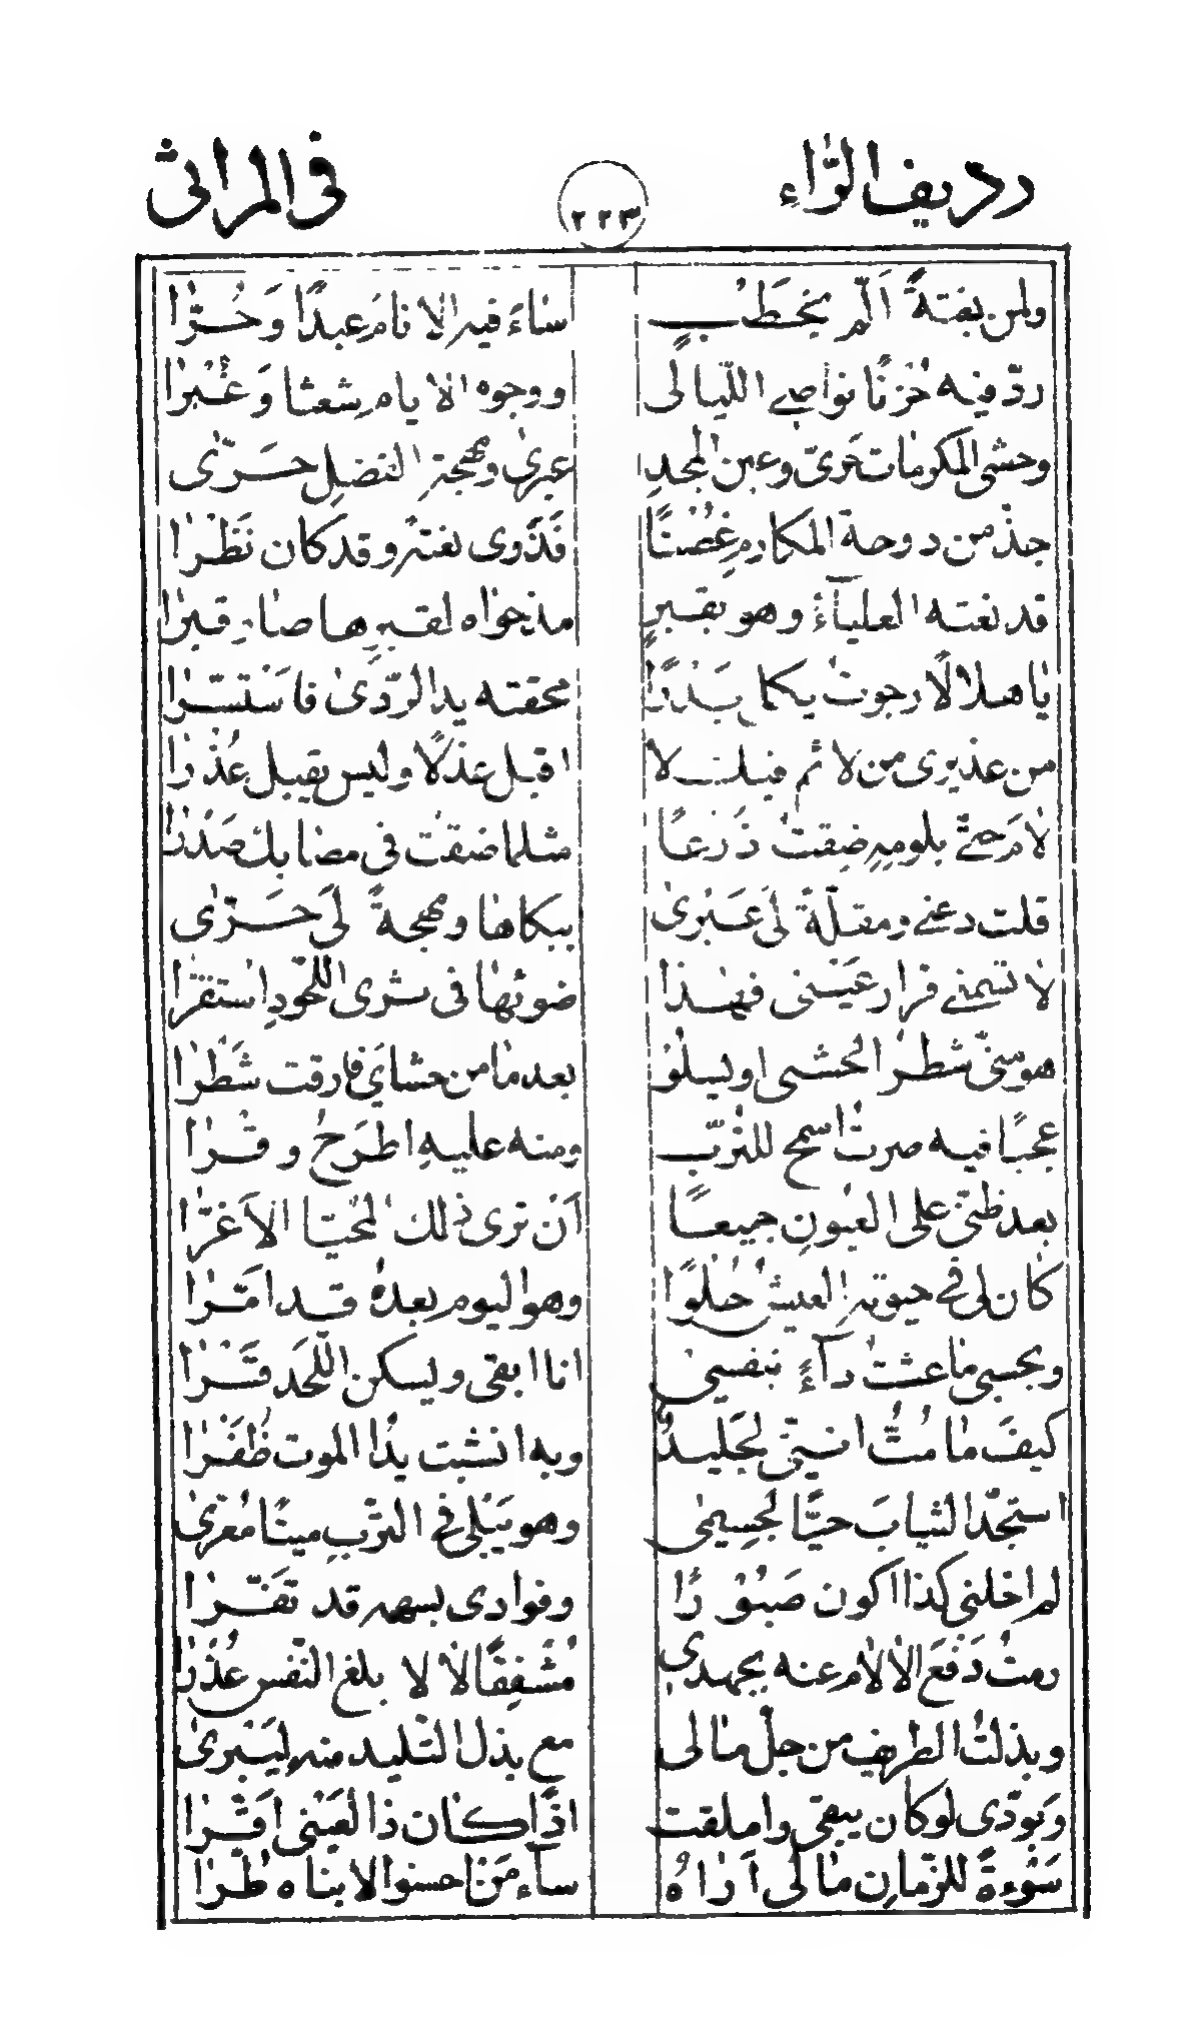 رديف الرّاء ٢٢٣ في المراثي
ولمن بغتةً اَلَمّ بخَطبٍ ساءَ فيه الانامَ عبدًا وَحُرّا
ردّ فيه حُزنًا نواصي اللّيالي ووجوه الايام شعثا وَغُبرا
وحشى المكرمات حَرىّ وعين المجدِ عبرىٰ ومهجة الفضلِ حَرّى
جذّ من دوحة المكارم غُصنًا فَذَوى بغتهً وقد كان نَضْرا
قد نعته العلياءُ وهو بقبرٍ مذ حواه لقبرها صار قبرا
يا هلالًا رجوتُ يكمل بَدرًا محقته يد الرّدىٰ فاَسْتسّرا
من عذيرى من لائم قبل لا اقبل عذلًا وليس يقبل عُذرا
لامَ حتّى بلومهِ ضقتُ ذَرعًا مثلما ضقتَ في مصابك صَدرا
قلت دعني ومقلةً لى عَبْرىٰ ببكاها ومهجةً لى حَرّى
لا تسمني قرار عَيني فهذا ضوئها في ثرى اللّحودِ استقرّا
هو منّى شطرُ الحشى او يسلُوْ بعد ما من حشاىَ فارقت شَطْرا
عجبًا فيه صرتُ اسمح للتُربّ ومنه عليهِ اطرَحُ وقرا
بعد ظنّى على العيونِ جميعًا اَنْ ترى ذلك المحيّا الاَغرّا
كان لى في حيوته العيشُ حُلوًا وهو اليوم بعدهُ قد امَرّا
وبحسبى ما عشتُ داءً بنفسىٰ انا ابقى ويسكن اللّحَد قَسْرا
كيفَ ما مُتُّ انّنى لجَليدٌ وبه انشبت يدُ الموت ظُفْرا
استجدّ الثيابَ حيًّا لجسمى وهو يَبْلى في التربِ ميتًا مُعرىٰ
لم اخلنى كذا اكون صَبُوْرًا وفوادى بسهمه قد تفَرّا
رمتُ دَفْعَ الالام عنه بجهدى مُشْفِقًا لا لا بلغ النّفس عُذْرا
وبذلتُ الطريف من جلّ مالى مع بذل التليد منه ليَبْرىٰ
وَبودّى لو كان يبقى واملقت اذًا كان ذا لعينى اقَرّا
سَوْءةً للزّمانِ ما لى اراهُ ساء مَنْ احسنوا الابناه طُرا